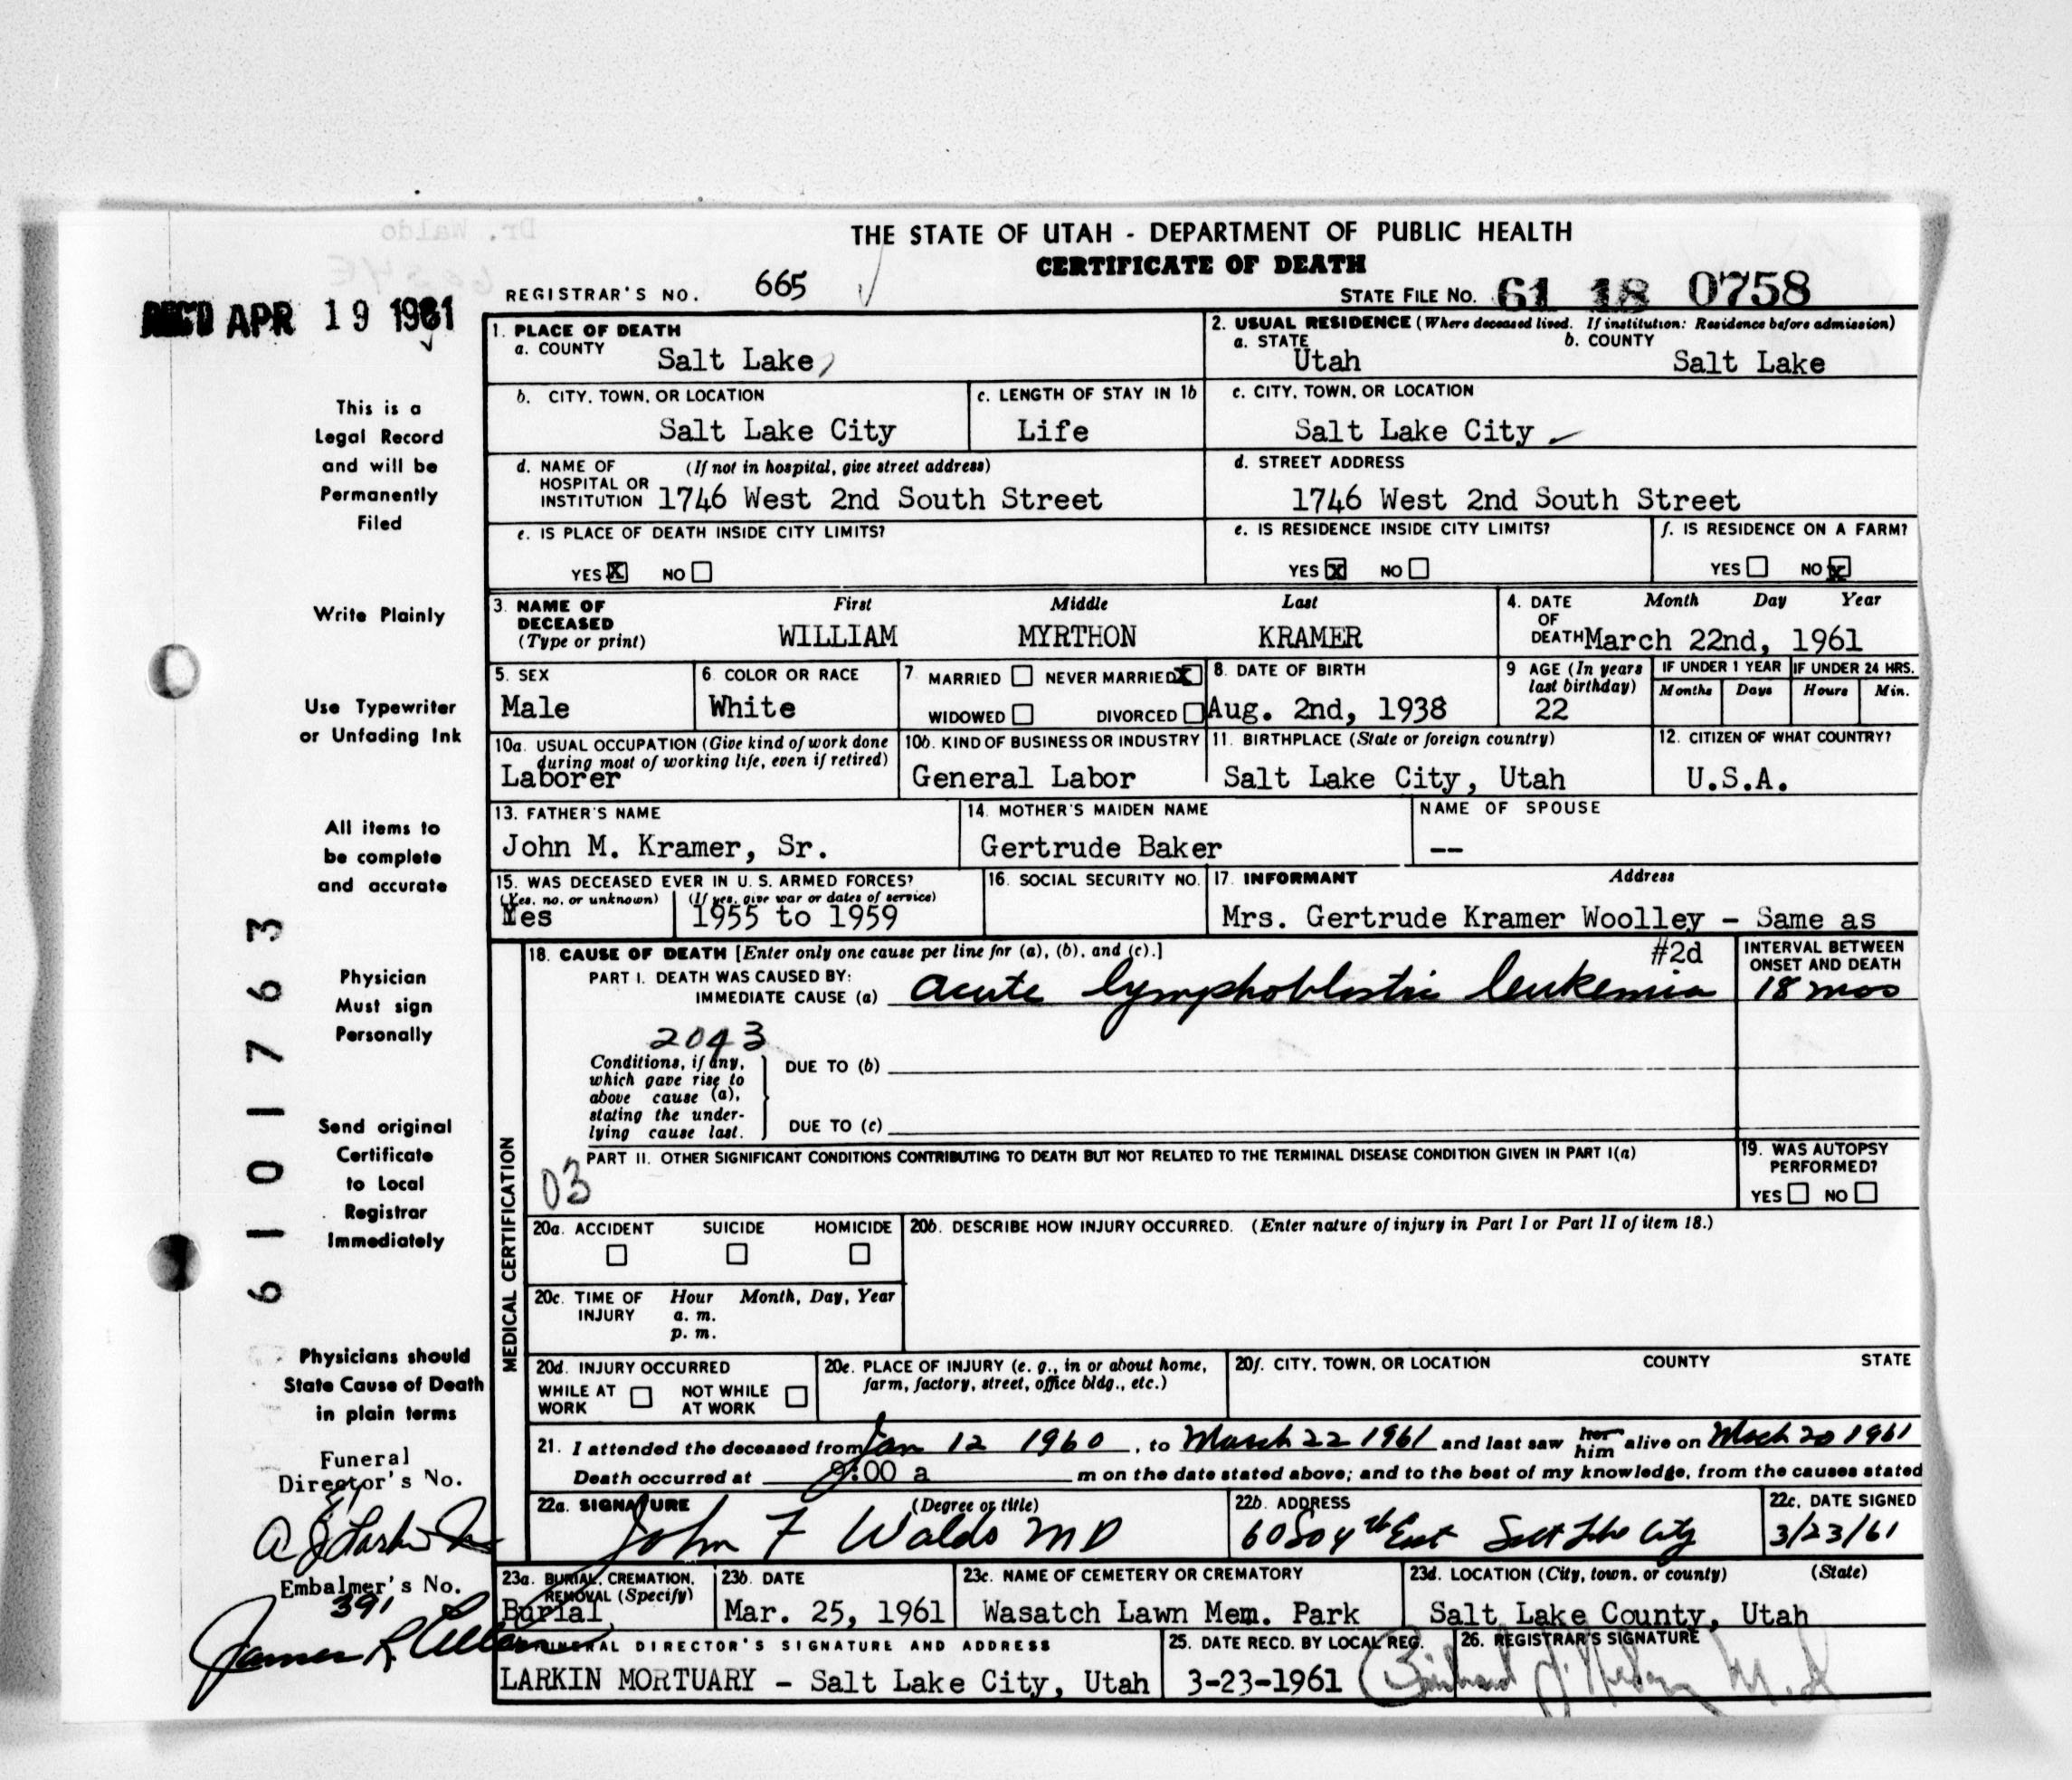 THE STATE OF UTAH - DEPARTMENT OF PUBLIC HEALTH
CERTIFICATE OF DEATH
REGISTRAR'S NO. 665
STATE FILE No. 61 18 0758
REC'D APR 19 1961
1. PLACE OF DEATH
a. COUNTY Salt Lake
2. USUAL RESIDENCE (Where deceased lived. If institution: Residence before admission)
a. STATE Utah b. COUNTY Salt Lake
b. CITY, TOWN, OR LOCATION Salt Lake City
c. LENGTH OF STAY IN 1b Life
c. CITY, TOWN, OR LOCATION Salt Lake City
d. NAME OF HOSPITAL OR INSTITUTION (If not in hospital, give street address) 1746 West 2nd South Street
d. STREET ADDRESS 1746 West 2nd South Street
e. IS PLACE OF DEATH INSIDE CITY LIMITS?
YES X NO
e. IS RESIDENCE INSIDE CITY LIMITS?
YES X NO
f. IS RESIDENCE ON A FARM?
YES NO X
3. NAME OF DECEASED (Type or print)
First Middle Last
WILLIAM MYRTHON KRAMER
4. DATE OF DEATH Month Day Year
March 22nd, 1961
5. SEX Male
6. COLOR OR RACE White
7. MARRIED NEVER MARRIED X
WIDOWED DIVORCED
8. DATE OF BIRTH Aug. 2nd, 1938
9 AGE (In years last birthday) 22
IF UNDER 1 YEAR Months Days
IF UNDER 24 HRS. Hours Min.
10a. USUAL OCCUPATION (Give kind of work done during most of working life, even if retired) Laborer
10b. KIND OF BUSINESS OR INDUSTRY General Labor
11. BIRTHPLACE (State or foreign country) Salt Lake City, Utah
12. CITIZEN OF WHAT COUNTRY? U.S.A.
13. FATHER'S NAME John M. Kramer, Sr.
14. MOTHER'S MAIDEN NAME Gertrude Baker
NAME OF SPOUSE --
15. WAS DECEASED EVER IN U. S. ARMED FORCES?
(Yes, no, or unknown) Yes (If yes, give war or dates of service) 1955 to 1959
16. SOCIAL SECURITY NO.
17. INFORMANT Address
Mrs. Gertrude Kramer Woolley - Same as #2d
18. CAUSE OF DEATH [Enter only one cause per line for (a), (b), and (c).]
INTERVAL BETWEEN ONSET AND DEATH
PART I. DEATH WAS CAUSED BY:
IMMEDIATE CAUSE (a) acute lymphoblastic leukemia 18 mos
2043
Conditions, if any, which gave rise to above cause (a), stating the underlying cause last.
DUE TO (b)
DUE TO (c)
PART II. OTHER SIGNIFICANT CONDITIONS CONTRIBUTING TO DEATH BUT NOT RELATED TO THE TERMINAL DISEASE CONDITION GIVEN IN PART I(a)
03
19. WAS AUTOPSY PERFORMED?
YES NO
MEDICAL CERTIFICATION
20a. ACCIDENT SUICIDE HOMICIDE
20b. DESCRIBE HOW INJURY OCCURRED. (Enter nature of injury in Part I or Part II of item 18.)
20c. TIME OF INJURY Hour a. m. p. m. Month, Day, Year
20d. INJURY OCCURRED
WHILE AT WORK NOT WHILE AT WORK
20e. PLACE OF INJURY (e. g., in or about home, farm, factory, street, office bldg., etc.)
20f. CITY, TOWN, OR LOCATION COUNTY STATE
21. I attended the deceased from Jan 12 1960, to March 22 1961 and last saw her him alive on March 20 1961
Death occurred at 9:00 a m on the date stated above; and to the best of my knowledge, from the causes stated
22a. SIGNATURE (Degree or title) John F Waldo MD
22b. ADDRESS 60 So 4th East Salt Lake City
22c. DATE SIGNED 3/23/61
23a. BURIAL, CREMATION, REMOVAL (Specify) Burial
23b. DATE Mar. 25, 1961
23c. NAME OF CEMETERY OR CREMATORY Wasatch Lawn Mem. Park
23d. LOCATION (City, town, or county) (State) Salt Lake County, Utah
FUNERAL DIRECTOR'S SIGNATURE AND ADDRESS
LARKIN MORTUARY - Salt Lake City, Utah
25. DATE RECD. BY LOCAL REG. 3-23-1961
26. REGISTRAR'S SIGNATURE
This is a
Legal Record
and will be
Permanently
Filed
Write Plainly
Use Typewriter
or Unfading Ink
All items to
be complete
and accurate
Physician
Must sign
Personally
Send original
Certificate
to Local
Registrar
Immediately
Physicians should
State Cause of Death
in plain terms
Funeral
Director's No.
Embalmer's No.
391
6101763